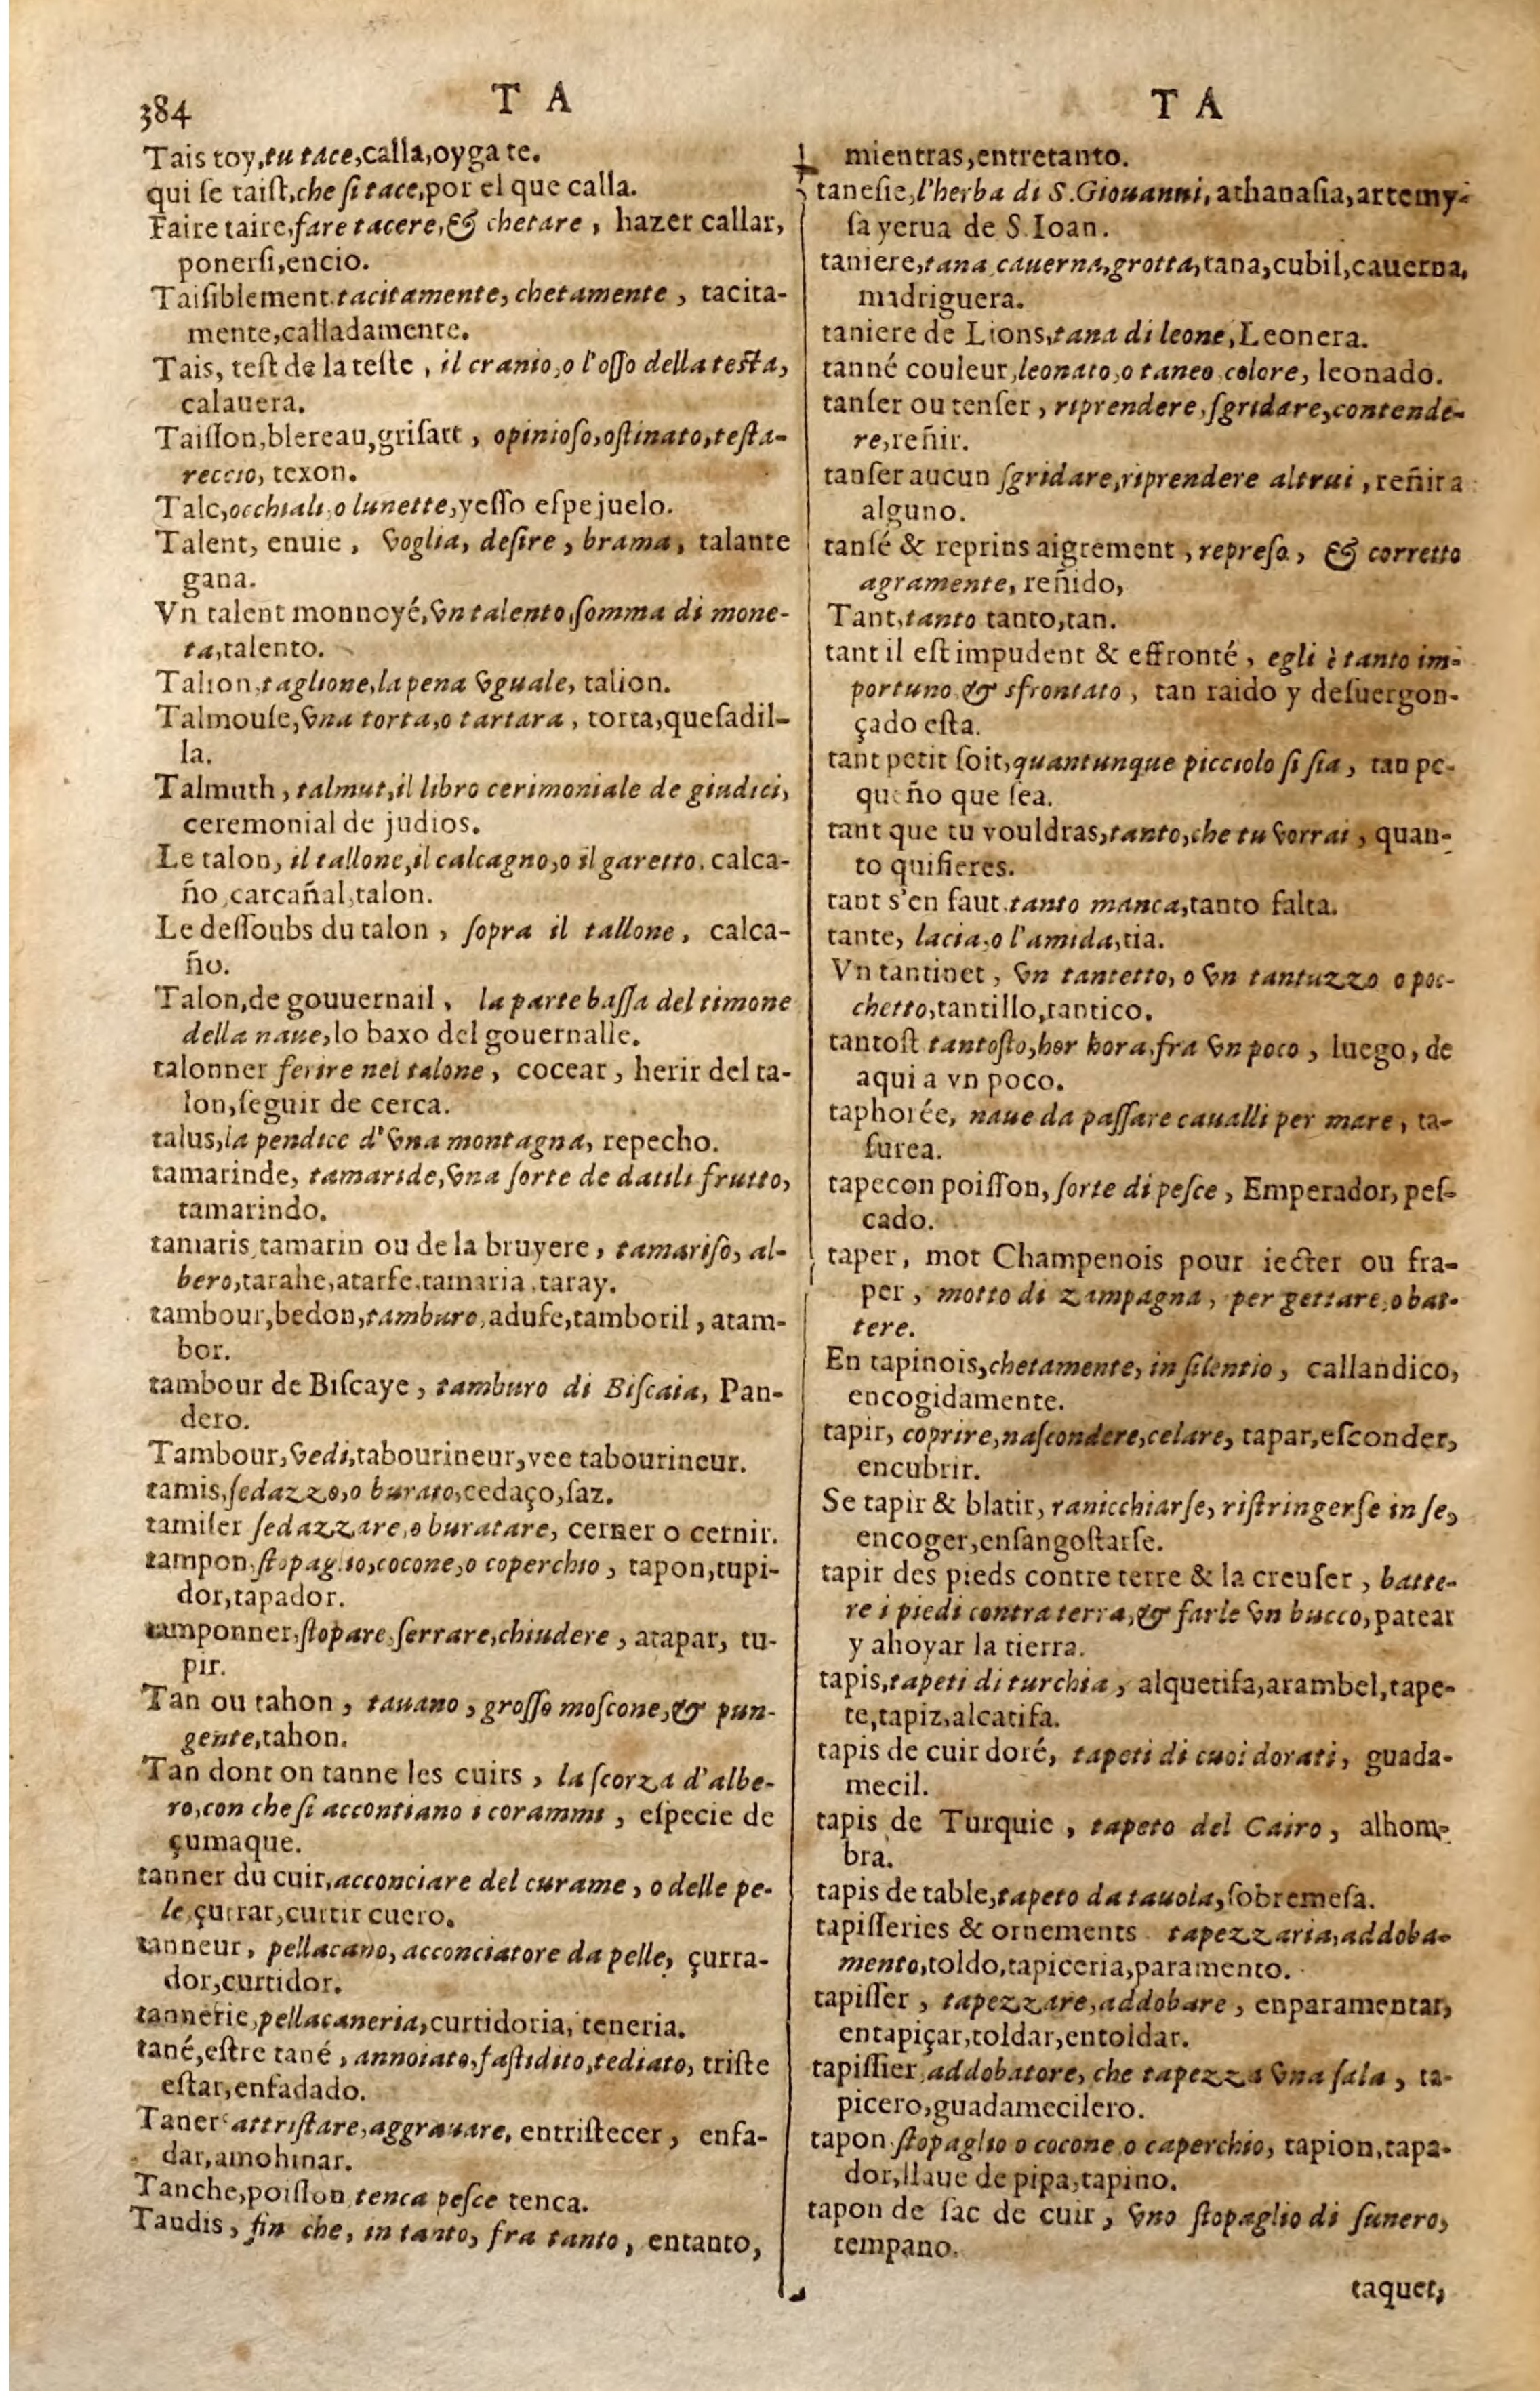 384
T A
Tais toy, tu tace, calla, oyga te.
qui se taiſt, che ſi tace, por el que calla.
Faire taire, fare tacere, & chetare, hazer callar,
ponerſi, encio.
Taiſiblement. tacitamente, chetamente, tacita-
mente, calladamente.
Tais, teſt de la teſte, il cranio, o l'oſſo della teſta,
calauera.
Taiſſon, blereau, griſart, opinioſo, oſtinato, teſta-
reccio, texon.
Talc, occhiali, o lunette, yeſſo eſpejuelo.
Talent, enuie, voglia, deſire, brama, talante
gana.
Vn talent monnoyé, vn talento, ſomma di mone-
ta, talento.
Talion, taglione, la pena vguale, talion.
Talmouſe, vna torta, o tartara, torta, queſadil-
la.
Talmuth, talmut, il libro cerimoniale de giudici,
ceremonial de judios.
Le talon, il tallone, il calcagno, o il garetto. calca-
ño, carcañal, talon.
Le deſſoubs du talon, ſopra il tallone, calca-
ño.
Talon, de gouuernail, la parte baſſa del timone
della naue, lo baxo del gouernalle.
talonner ferire nel talone, cocear, herir del ta-
lon, ſeguir de cerca.
talus, la pendice d'vna montagna, repecho.
tamarinde, tamaride, vna ſorte de datili frutto,
tamarindo.
tamaris, tamarin ou de la bruyere, tamariſo, al-
bero, tarahe, atarfe, tamaria, taray.
tambour, bedon, tamburo, adufe, tamboril, atam-
bor.
tambour de Biſcaye, tamburo di Biſcaia, Pan-
dero.
Tambour, vedi, tabourineur, vee tabourineur.
tamis, ſedazzo, o burato, cedaço, ſaz.
tamiſer ſedazzare, o buratare, cerner o cernir.
tampon, ſtopaglio, cocone, o coperchio, tapon, tupi-
dor, tapador.
tamponner, ſtopare, ſerrare, chiudere, atapar, tu-
pir.
Tan ou tahon, tauano, groſſo moſcone, & pun-
gente, tahon.
Tan dont on tanne les cuirs, la ſcorza d'albe-
ro, con che ſi accontiano i corammi, eſpecie de
çumaque.
tanner du cuir, acconciare del curame, o delle pe-
le, çurrar, curtir cuero.
tanneur, pellacano, acconciatore da pelle, çurra-
dor, curtidor.
tannerie, pellacaneria, curtidoria, teneria.
tané, eſtre tané, annoiato, faſtidito, tediato, triſte
eſtar, enfadado.
Taner attriſtare, aggrauare, entriſtecer, enfa-
dar, amohinar.
Tanche, poiſſon tenca peſce tenca.
Taudis, fin che, in tanto, fra tanto, entanto,
T A
mientras, entretanto.
taneſie, l'herba di S. Giouanni, athanaſia, artemy-
ſa yerua de S. Ioan.
taniere, tana cauerna, grotta, tana, cubil, cauerna,
madriguera.
taniere de Lions, tana di leone, Leonera.
tanné couleur, leonato, o taneo colore, leonado.
tanſer ou tenſer, riprendere, ſgridare, contende-
re, reñir.
tanſer aucun ſgridare, riprendere altrui, reñir a
alguno.
tanſé & reprins aigrement, repreſo, & corretto
agramente, reñido,
Tant, tanto tanto, tan.
tant il eſt impudent & effronté, egli è tanto im-
portuno & sfrontato, tan raido y deſuergon-
çado eſta.
tant petit ſoit, quantunque picciolo ſi ſia, tan pe-
queño que ſea.
tant que tu vouldras, tanto, che tu vorrai, quan-
to quiſieres.
tant s'en faut. tanto manca, tanto falta.
tante, la cia, o l'amida, tia.
Vn tantinet, vn tantetto, o vn tantuzzo o poc-
chetto, tantillo, tantico.
tantoſt tantoſto, hor hora, fra vn poco, luego, de
aqui a vn poco.
taphorée, naue da paſſare caualli per mare, ta-
furea.
tapecon poiſſon, ſorte di peſce, Emperador, peſ-
cado.
taper, mot Champenois pour iecter ou fra-
per, motto di zampagna, per gettare, o bat-
tere.
En tapinois, chetamente, in ſilentio, callandico,
encogidamente.
tapir, coprire, naſcondere, celare, tapar, eſconder,
encubrir.
Se tapir & blatir, ranicchiarſe, riſtringerſe in ſe,
encoger, enſangoſtarſe.
tapir des pieds contre terre & la creuſer, batte-
re i piedi contra terra, & farle vn bucco, patear
y ahoyar la tierra.
tapis, tapeti di turchia, alquetifa, arambel, tape-
te, tapiz, alcatifa.
tapis de cuir doré, tapeti di cuoi dorati, guada-
mecil.
tapis de Turquie, tapeto del Cairo, alhom-
bra.
tapis de table, tapeto da tauola, ſobremeſa.
tapiſſeries & ornements. tapezzaria, addoba-
mento, toldo, tapiceria, paramento.
tapiſſer, tapezzare, addobare, enparamentar,
entapiçar, toldar, entoldar.
tapiſſier, addobatore, che tapezza vna ſala, ta-
picero, guadamecilero.
tapon, ſtopaglio o cocone o caperchio, tapion, tapa-
dor, llaue de pipa, tapino.
tapon de ſac de cuir, vno ſtopaglio di ſunero,
tempano.
taquet,